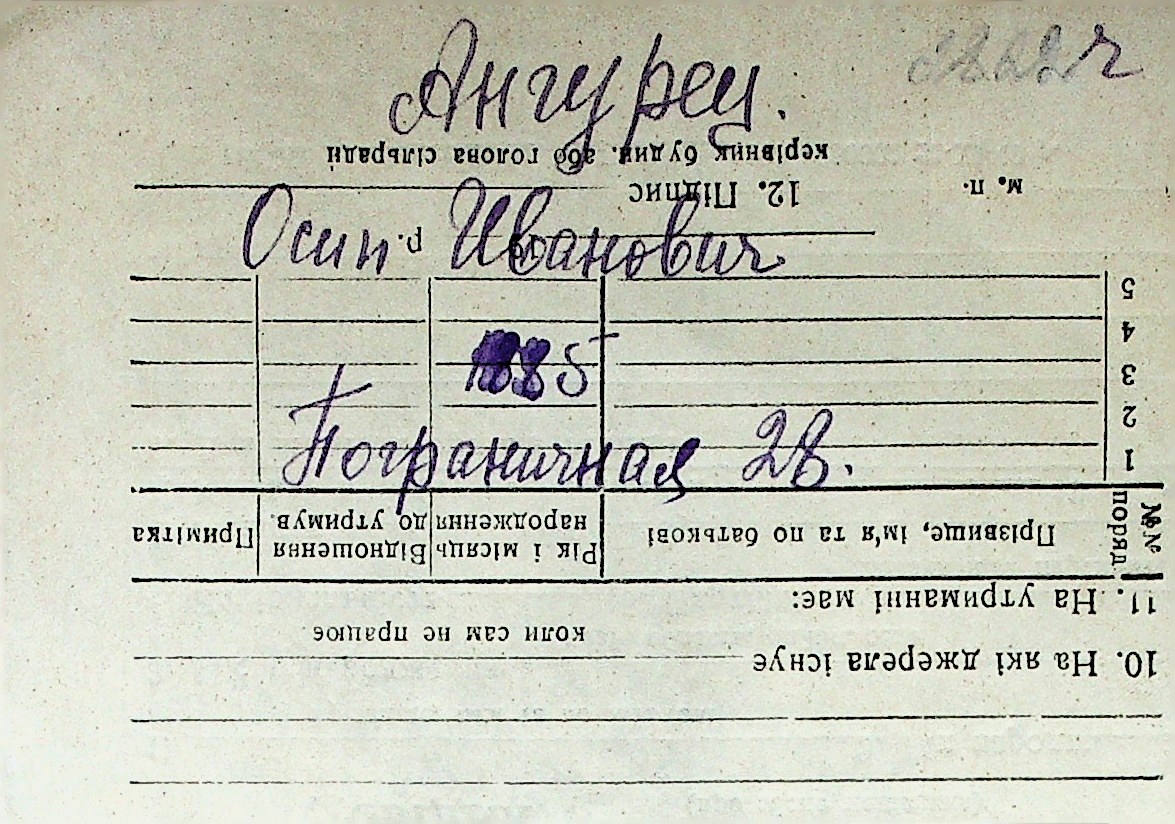 Ангурец.
Осип Иванович
1885
Пограничная 28.
10. На які джерела існує
коли сам не працює
11. На утриманні має:
№№ поряд Прізвище, ім'я та по батькові Рік і місяць народження Відношення до утримув. Примітка
1
2
3
4
5
р.
м. п. 12. Підпис
керівник будин. або голова сільради